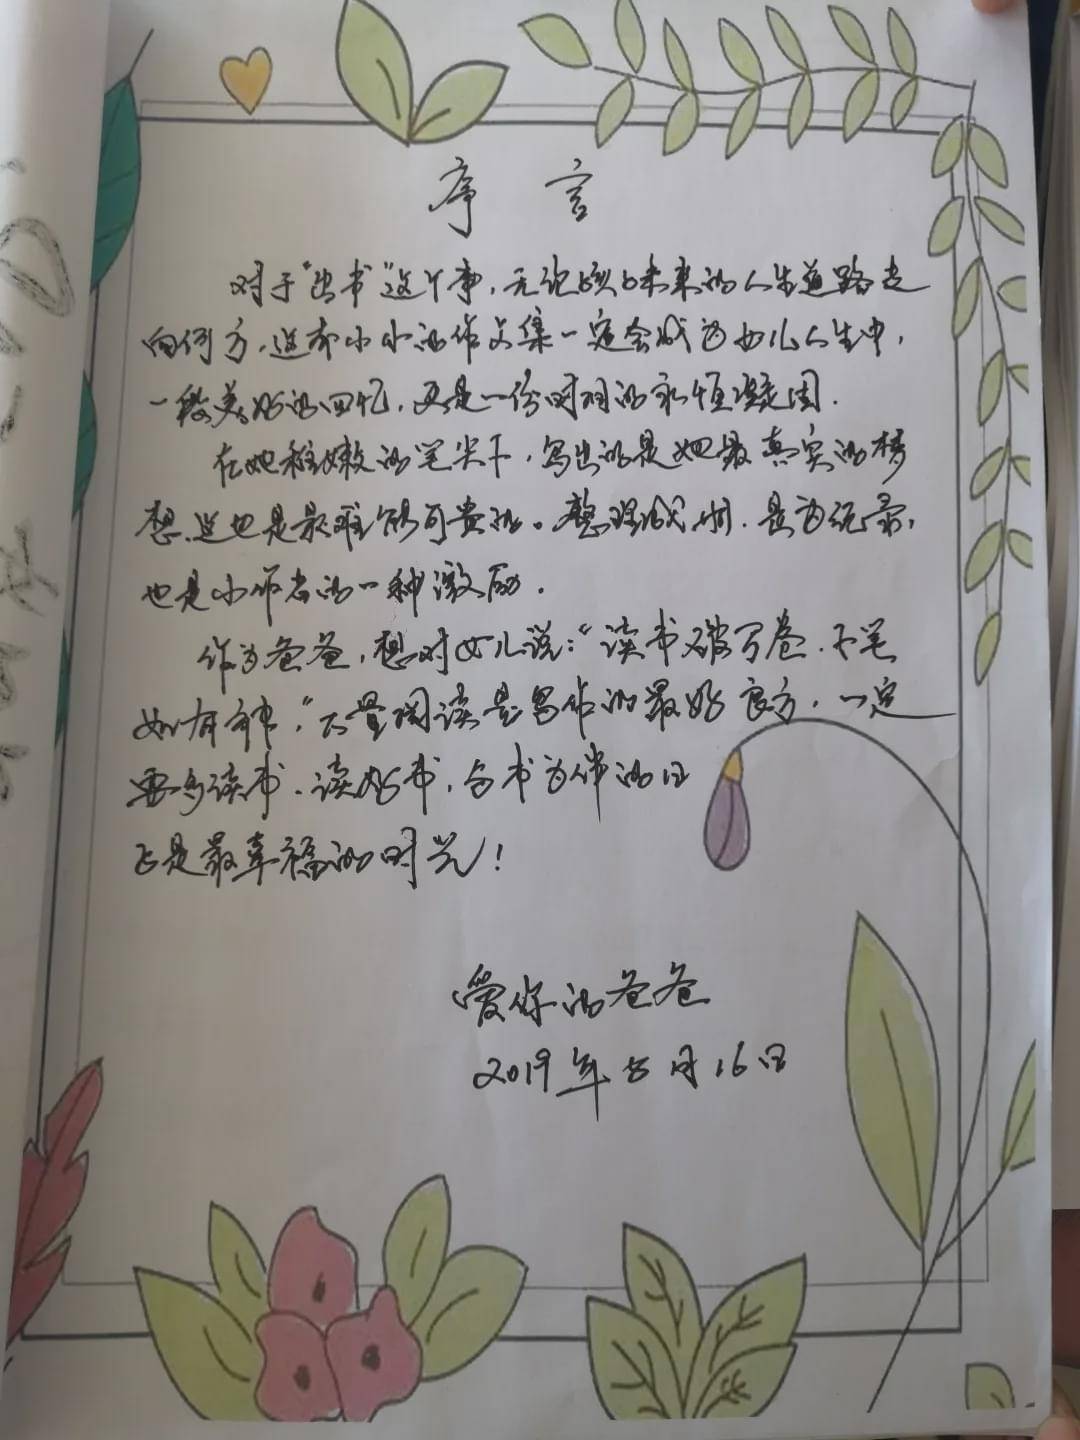 序言
对于“出书”这个事，无论孩子未来的人生道路走
向何方，这本小小的作文集一定会成为女儿人生中，
一段美好的回忆，更是一份时间的永恒凝固.
在她稚嫩的笔尖下，写出的是她最真实的梦
想，这也是最难能可贵的。整理成册，是为记录，
也是小作者的一种激励.
作为爸爸，想对女儿说：“读书破万卷.下笔
如有神，”大量阅读是写作的最好良方，一定
要多读书.读好书，与书为伴的日
子是最幸福的时光！
爱你的爸爸
2019年5月16日